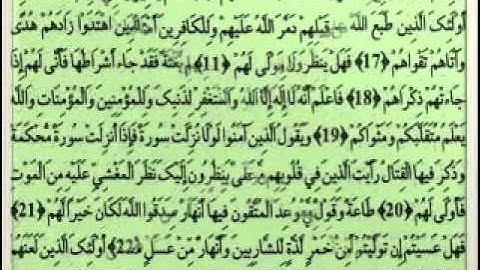 أُولَئِكَ الَّذِينَ طَبَعَ اللَّهُ قَبْلِهِمْ دَمَّرَ اللَّهُ عَلَيْهِمْ وَلِلْكَافِرِينَ اهْتَدَوْا زَادَهُمْ هُدًى
وَآتَاهُمْ تَقْوَاهُمْ ﴿17﴾ فَهَلْ يَنْظُرُ وَلَا مَوْلَى لَهُمْ ﴿11﴾ بَغْتَةً فَقَدْ جَاءَ أَشْرَاطُهَا فَأَنَّى لَهُمْ إِذَا
جَاءَتْهُمْ ذِكْرَاهُمْ ﴿18﴾ فَاعْلَمْ أَنَّهُ لَا إِلَهَ إِلَّا اللَّهُ وَاسْتَغْفِرْ لِذَنْبِكَ وَلِلْمُؤْمِنِينَ وَالْمُؤْمِنَاتِ وَاللَّهُ
يَعْلَمُ مُتَقَلَّبَكُمْ وَمَثْوَاكُمْ ﴿19﴾ وَيَقُولُ الَّذِينَ آمَنُوا لَوْلَا نُزِّلَتْ سُورَةٌ فَإِذَا أُنْزِلَتْ سُورَةٌ مُحْكَمَةٌ
وَذُكِرَ فِيهَا الْقِتَالُ رَأَيْتَ الَّذِينَ فِي قُلُوبِهِمْ يَنْظُرُونَ إِلَيْكَ نَظَرَ الْمَغْشِيِّ عَلَيْهِ مِنَ الْمَوْتِ
فَأَوْلَى لَهُمْ ﴿20﴾ طَاعَةٌ وَقَوْلٌ وُعِدَ الْمُتَّقُونَ فِيهَا أَنْهَارٌ صَدَقُوا اللَّهَ لَكَانَ خَيْرًا لَهُمْ ﴿21﴾
فَهَلْ عَسَيْتُمْ إِنْ تَوَلَّيْتُمْ مِنْ خَمْرٍ لَذَّةٍ لِلشَّارِبِينَ وَأَنْهَارٌ مِنْ عَسَلٍ ﴿22﴾ أُولَئِكَ الَّذِينَ لَعَنَهُمُ